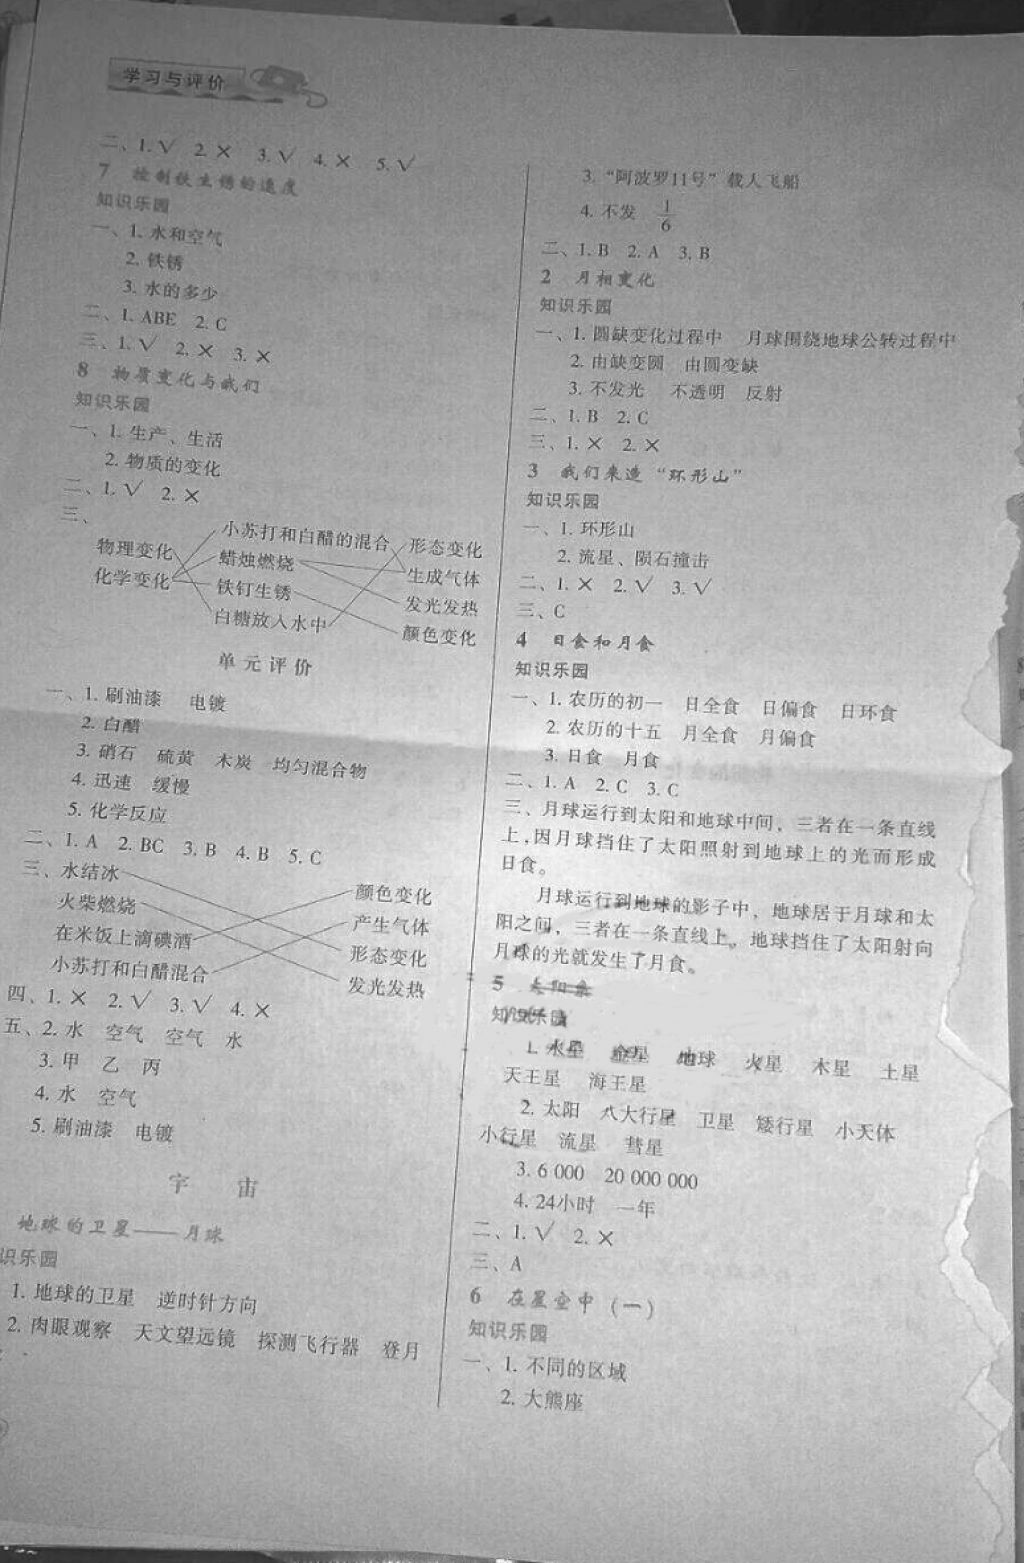 学习与评价
二、1.√ 2.× 3.√ 4.× 5.√
7 控制铁生锈的速度
知识乐园
一、1. 水和空气
2. 铁锈
3. 水的多少
二、1. ABE 2. C
三、1.√ 2.× 3.×
8 物质变化与我们
知识乐园
一、1. 生产、生活
2. 物质的变化
二、1.√ 2.×
三、
小苏打和白醋的混合 形态变化
物理变化 蜡烛燃烧 生成气体
化学变化 铁钉生锈 发光发热
白糖放入水中 颜色变化
单元评价
一、1. 刷油漆 电镀
2. 白醋
3. 硝石 硫黄 木炭 均匀混合物
4. 迅速 缓慢
5. 化学反应
二、1. A 2. BC 3. B 4. B 5. C
三、水结冰 颜色变化
火柴燃烧 产生气体
在米饭上滴碘酒 形态变化
小苏打和白醋混合 发光发热
四、1.× 2.√ 3.√ 4.×
五、2. 水 空气 空气 水
3. 甲 乙 丙
4. 水 空气
5. 刷油漆 电镀
宇 宙
地球的卫星——月球
识乐园
1. 地球的卫星 逆时针方向
2. 肉眼观察 天文望远镜 探测飞行器 登月
3. “阿波罗11号”载人飞船
4. 不发 1/6
二、1. B 2. A 3. B
2 月相变化
知识乐园
一、1. 圆缺变化过程中 月球围绕地球公转过程中
2. 由缺变圆 由圆变缺
3. 不发光 不透明 反射
二、1. B 2. C
三、1.× 2.×
3 我们来造“环形山”
知识乐园
一、1. 环形山
2. 流星、陨石撞击
二、1.× 2.√ 3.√
三、C
4 日食和月食
知识乐园
一、1. 农历的初一 日全食 日偏食 日环食
2. 农历的十五 月全食 月偏食
3. 日食 月食
二、1. A 2. C 3. C
三、月球运行到太阳和地球中间，三者在一条直线
上，因月球挡住了太阳照射到地球上的光而形成
日食。
月球运行到地球的影子中，地球居于月球和太
阳之间，三者在一条直线上。地球挡住了太阳射向
月球的光就发生了月食。
5 太阳系
知识乐园
1. 水星 金星 地球 火星 木星 土星
天王星 海王星
2. 太阳 八大行星 卫星 矮行星 小天体
小行星 流星 彗星
3. 6 000 20 000 000
4. 24小时 一年
二、1.√ 2.×
三、A
6 在星空中（一）
知识乐园
一、1. 不同的区域
2. 大熊座